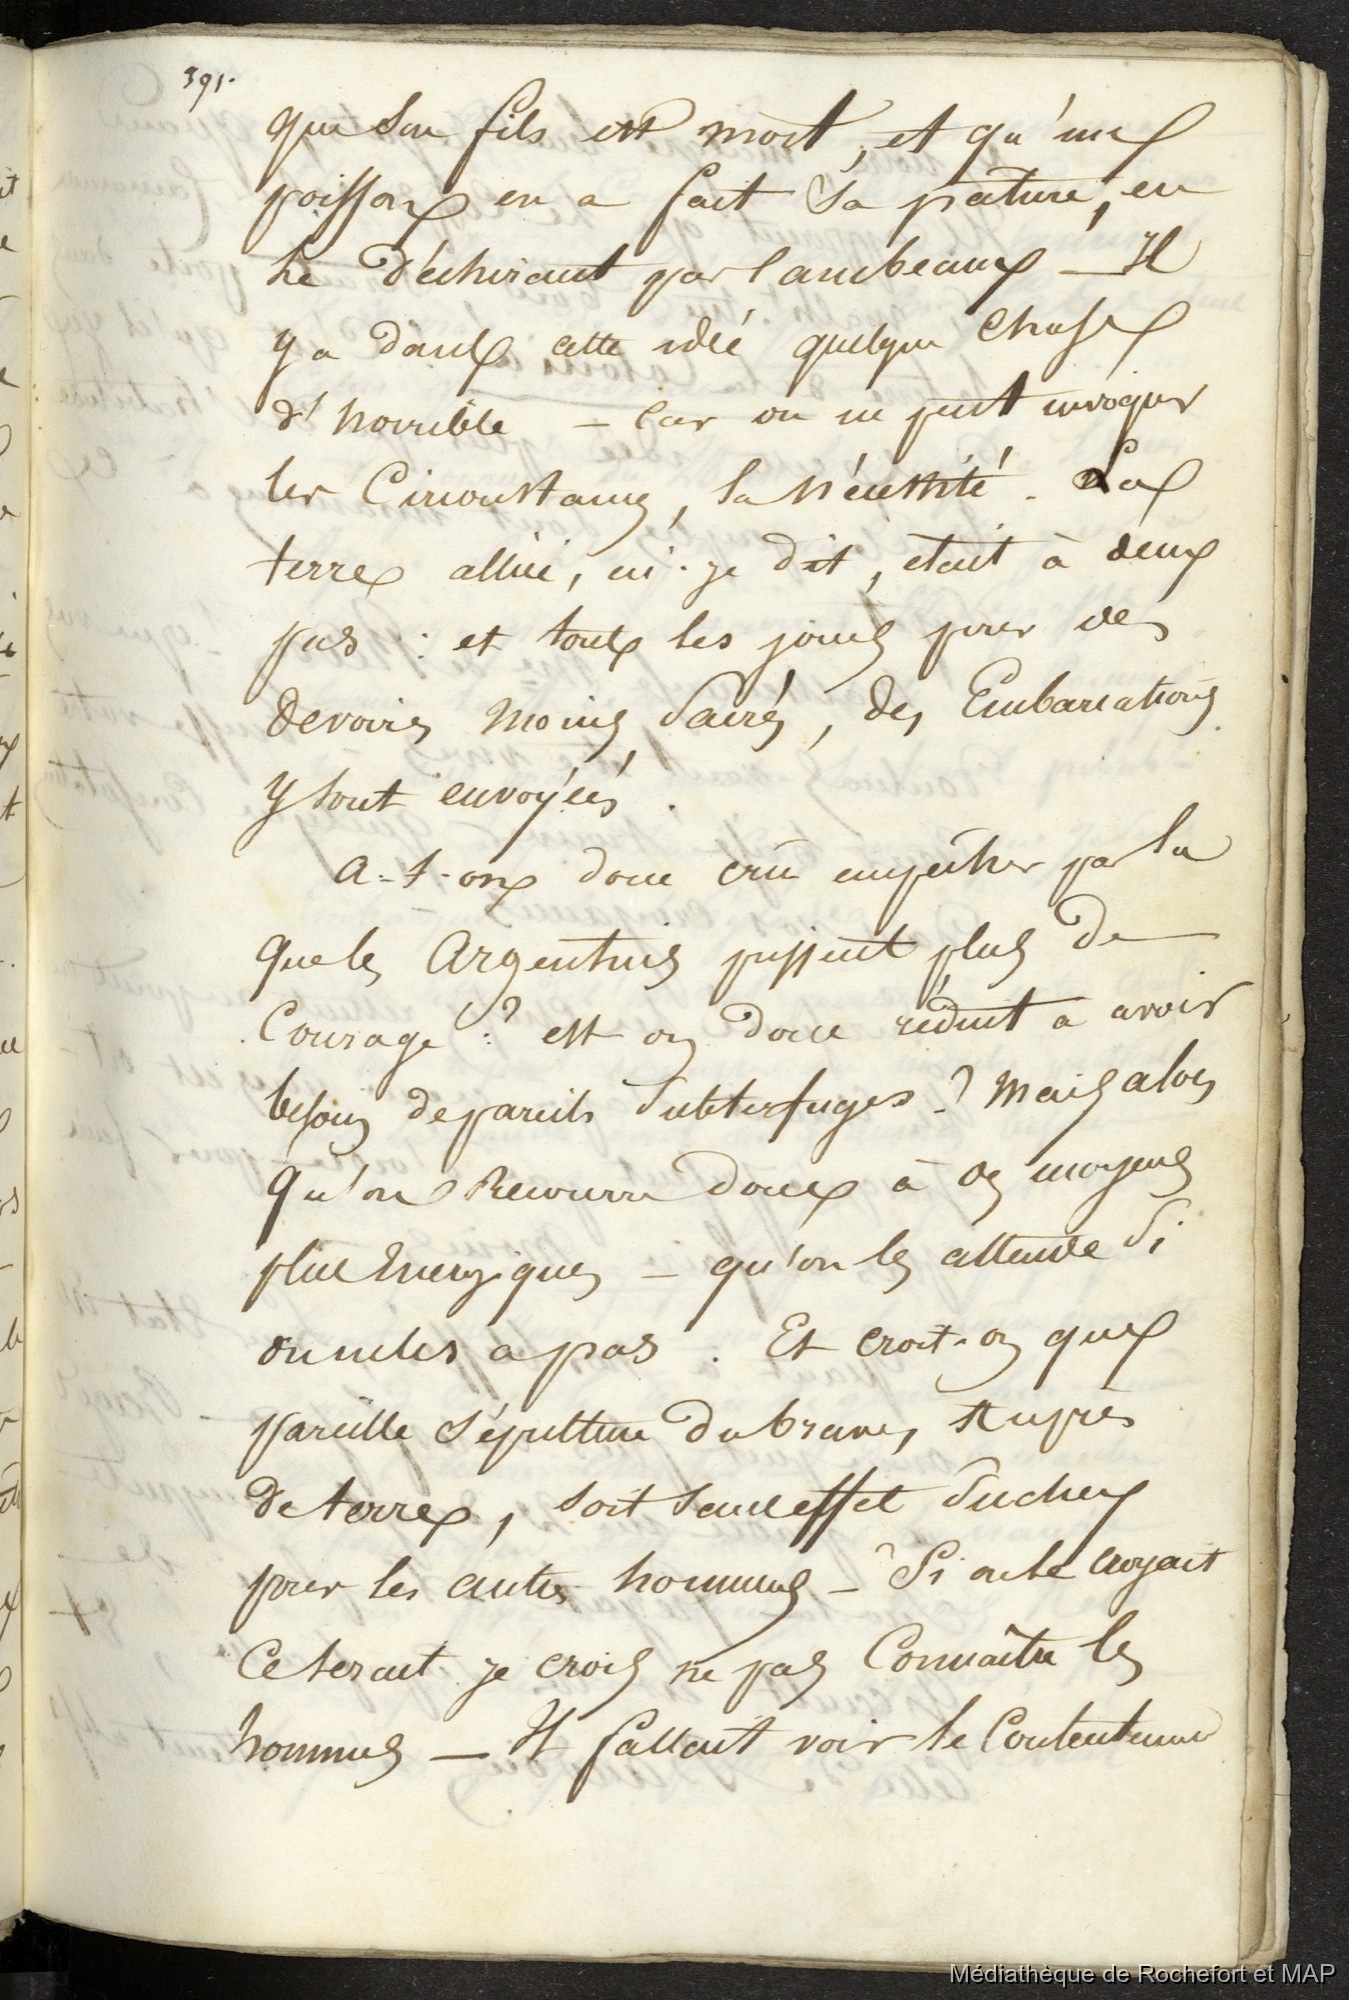 391.
que son fils est mort, et qu'un
poisson en a fait sa pâture, en
le déchirant par lambeaux — Il
y a dans cette idée quelque chose
d'horrible — Car on ne peut invoquer
les Circonstances, la Nécessité. La
terre alliée, ai-je dit, était à deux
pas : et tous les jours pour des
devoirs moins Sacrés, des Embarcations
y sont envoyées.
A-t-on donc crû empêcher par là
que les Argentins prissent plus de
Courage ? est on donc réduit a avoir
besoin de pareils Subterfuges ? Mais alors
qu'on Recourre donc à des moyens
plus Energiques — qu'on les attende Si
on ne les a pas. Et croit-on que
pareille Sépulture du brave, si près
de terre, soit sans effet
pour les autres hommes — Si on le croyait
Ce serait je crois ne pas Connaître les
hommes — Il fallait voir le Contentement
Médiathèque de Rochefort et MAP